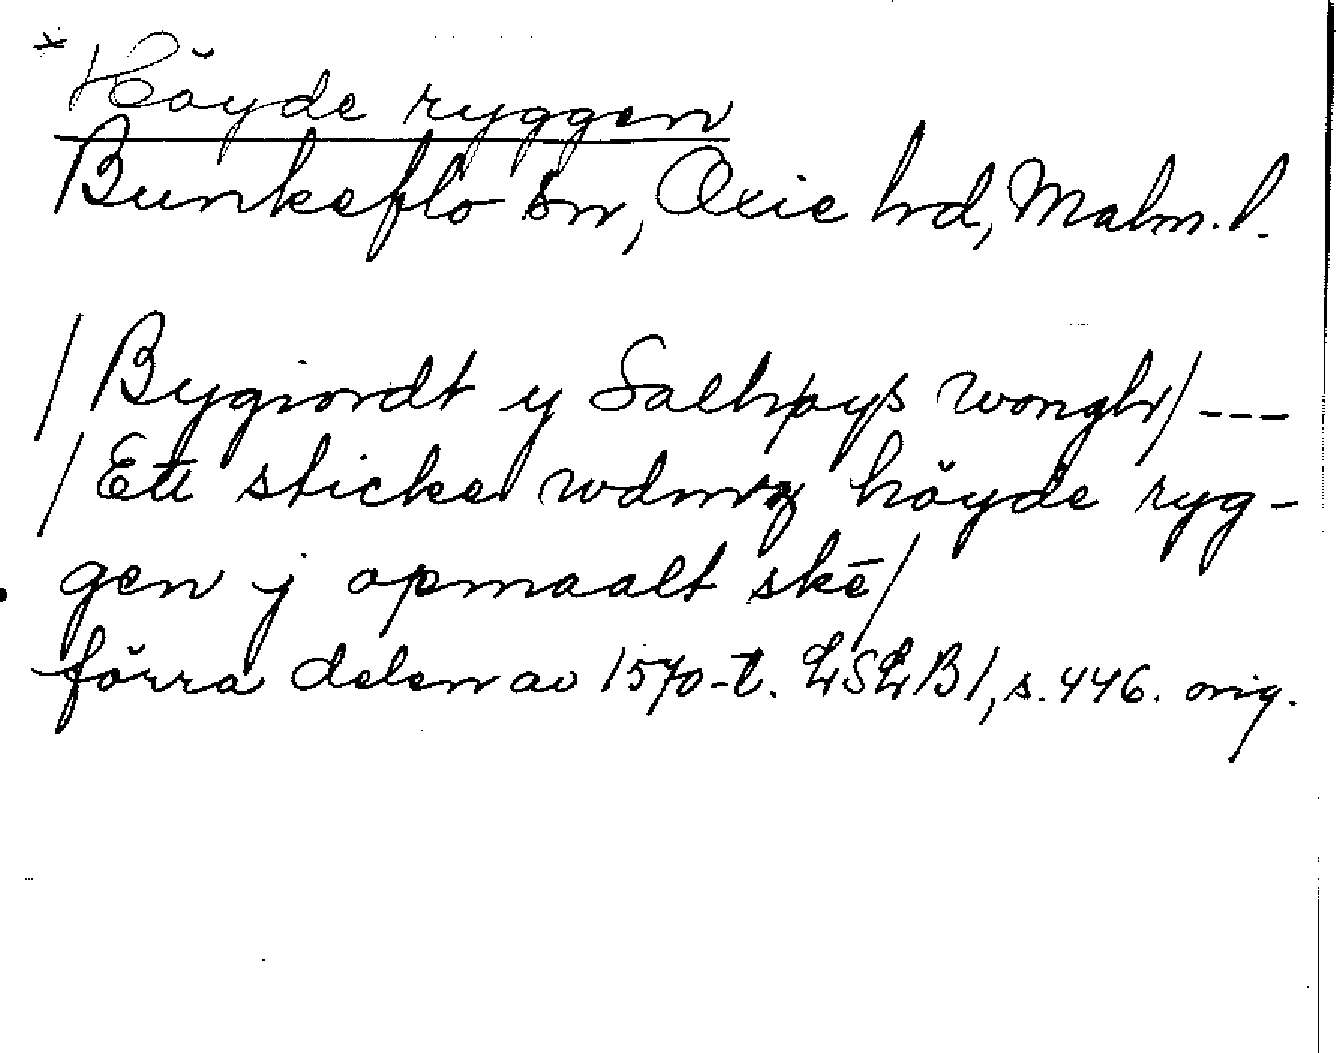 * Höyde ryggen
Bunkeflo sn, Oxie hd, Malm. l.
/ Bygiordt y Salhøys wongh / ---
/ Ett sticke wdmz höyde ryg-
gen j opmaalt skē /
förra delen av 1570-t. LSLB 1, s. 446. orig.